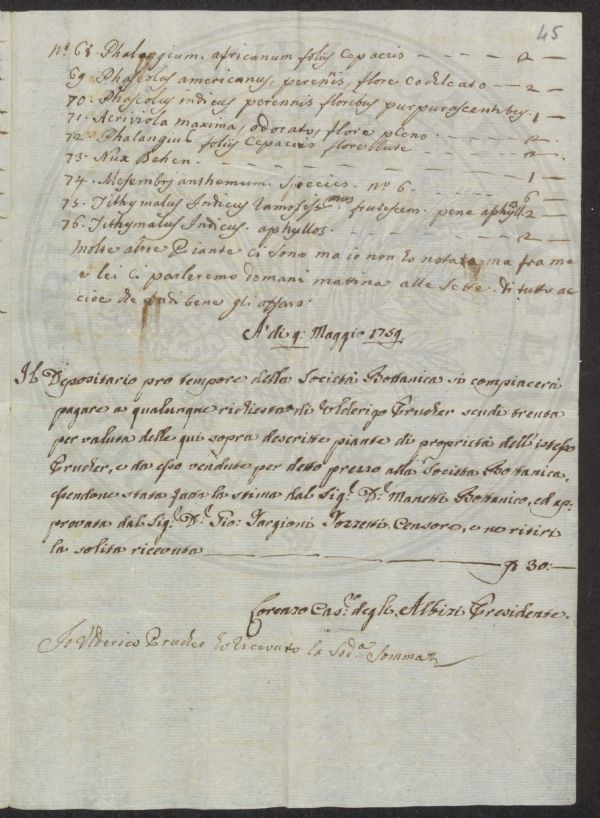 45
nº 68. Phalangium africanum folijs cepaceis - - - - 2 -
69. Phaseolus americanus, perennis, flore codeleato - - 2 -
70. Phaseolus indicus perennis floribus purpurascentibus. 1 -
71. Acriviola maxima, odorata, flore pleno - - - - 2 -
72. Phalangius folijs cepaceis flore lute
73. Nux Behen. - - - - 1 -
74. Mesembrijanthemum species. nº 6. - - - - 6 -
75. Tithymalus Indicus ramosissimus frutescens pene aphyll. 2 -
76. Tithymalus Indicus aphyllos. - - - - 2 -
Molte altre Piante ci sono ma io non ho notata ma fra me
e lei ci parleremo domani mattina alle sette di tutto ac
cioe che vadi bene gli affare
A' di 9: Maggio 1759
Il Depositario pro tempore della Società Bottanica si compiacerà
pagare a qualunque richiesta di Ulderigo Prucher scudi trenta
per valuta delle qui sopra descritte piante di proprietà dell'istesso
Prucher, e da esso vendute per detto prezzo alla Società Bottanica,
essendone stata fatta la stima dal Sig.r D.r Manetti Bottanico, ed ap:
provata dal Sig.r D.r Gio: Targioni Tozzetti Censore, e ne ritiri
la solita ricevuta 30: -
Lorenzo Cas.º degli Albizi Presidente.
Io Ulderico Prucher ho ricevuto la Sod.a Somma